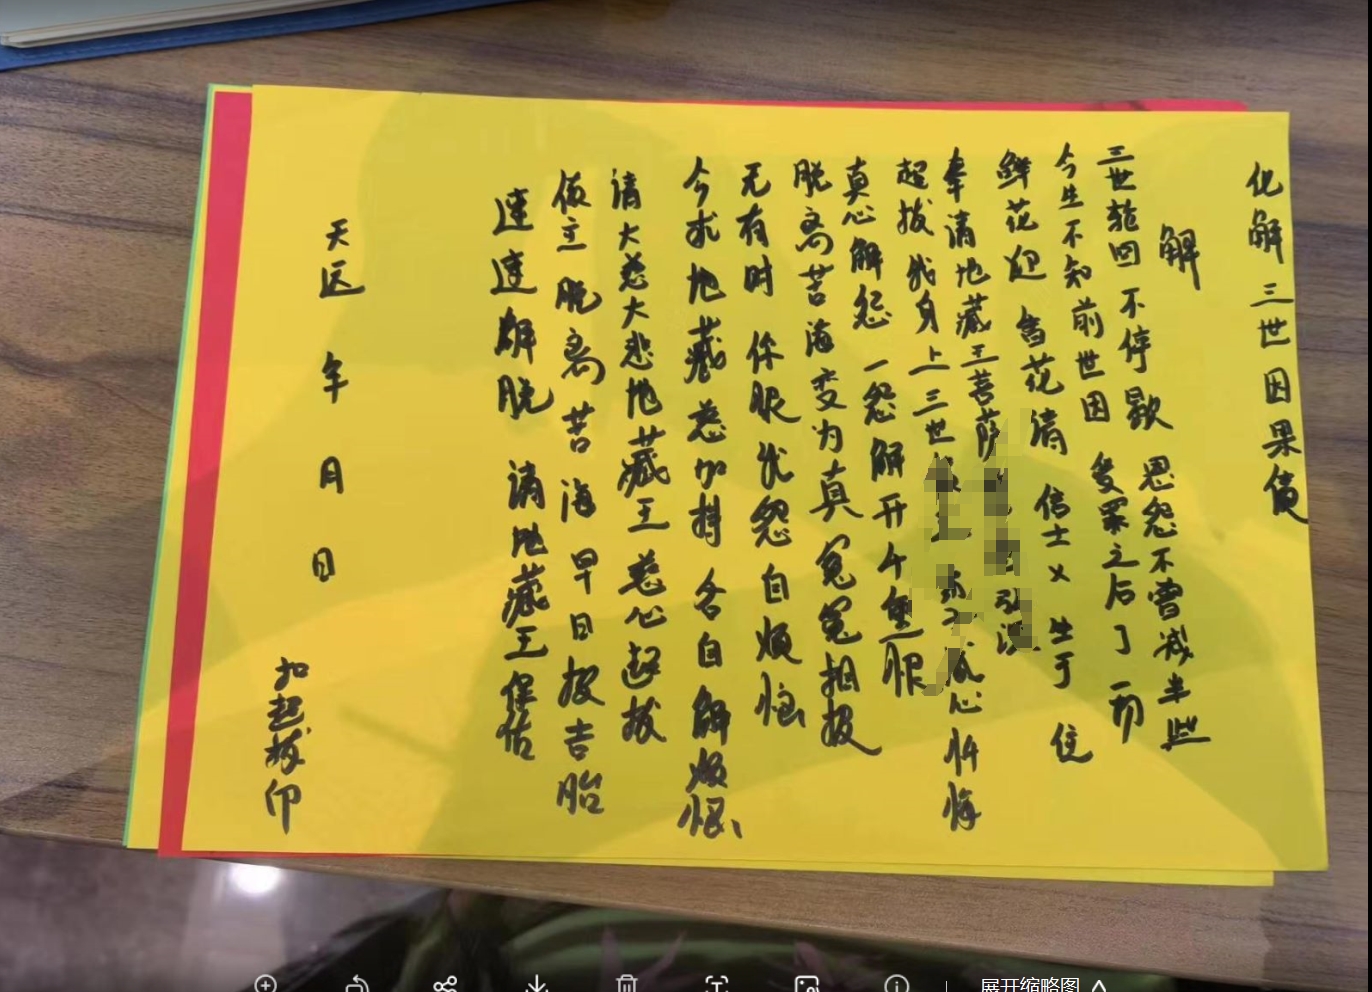 化解三世因果债
解
三世轮回不停歇 恩怨不曾减半些
今生不知前世因 受罪之后了一切
鲜花迎 香花请 信士 X 生于 住
奉请地藏王菩萨
超拔我身上三世 诚心忏悔
真心解怨 一怨解开千重恨
脱离苦海变为真 冤冤相报
无有时 你恨我怨自烦恼
今求地藏慈加持 各自解烦恨、
请大慈大悲地藏王慈心超拔
做主脱离苦海早日投吉胎
速速解脱 请地藏王保佑
天运 年 月 日
扣超拔印
展开缩略图